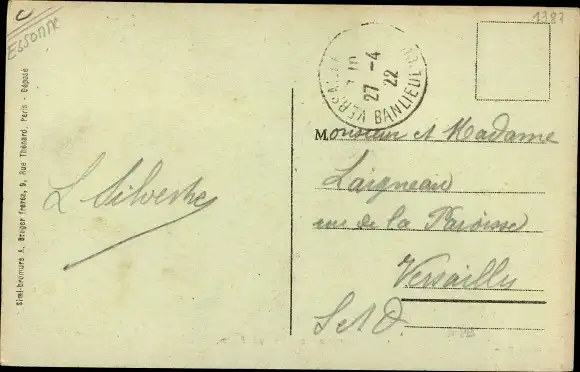 Essonne
1387
VERSAILLES BANLIEUE
27 -4
22
Monsieur et Madame
Laigneau
rue de la Paroisse
Versailles
S et O.
L Silvestre
Simi-bromure A. Breger frères, 9, Rue Thénard, Paris - Déposé